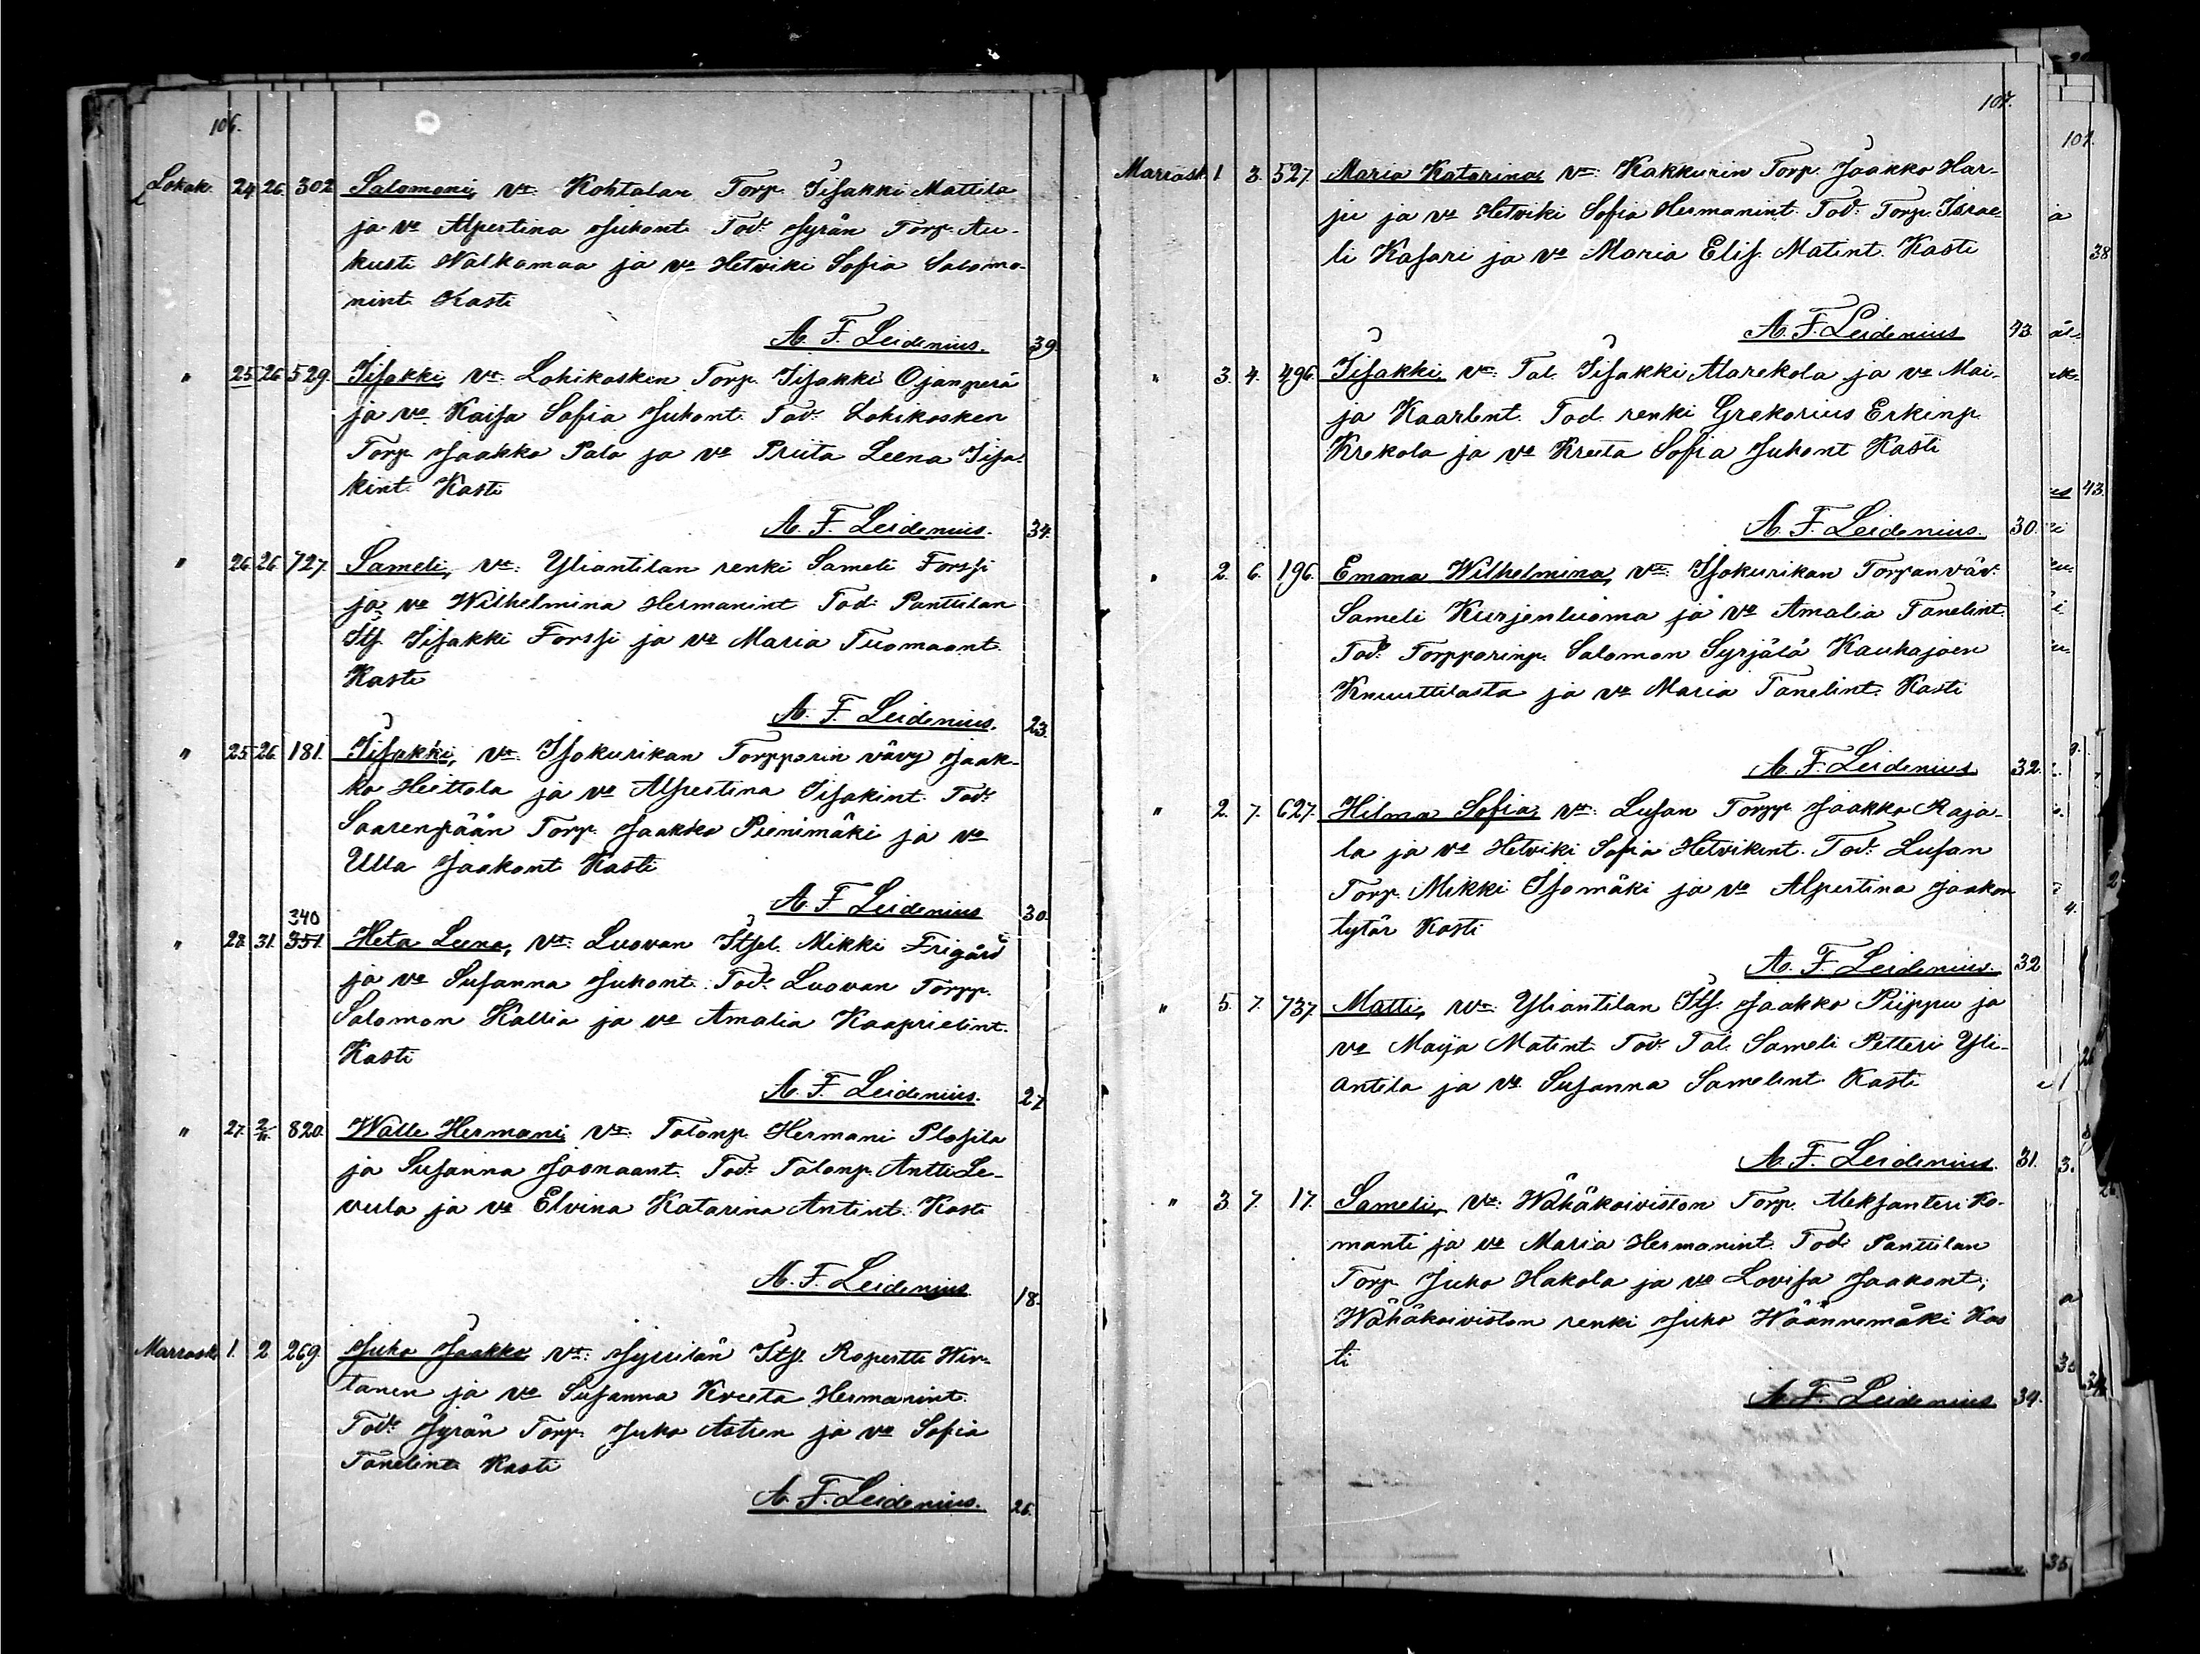 106.
Lokak. 24. 26. 302 Salomoni, v:t Kohtalan Torp. Iisakki Mattila
ja vo Alpertina Juhont. Tod: Jyrän Torp. Au-
kusti Walkamaa ja vo Hetviki Sofia Salomo-
nint. Kasti
A. F. Leidenius. 39.
" 25 26 529. Iisakki, v:t Lohikosken Torp. Iisakki Ojanperä
ja vo Kaisa Sofia Juhont. Tod: Lohikosken
Torp. Jaakko Palo ja vo Priita Leena Iisa-
kint. Kasti
A. F. Leidenius. 34.
" 26. 26. 727. Sameli, v:t Yliantilan renki Sameli Forssi
ja vo Wilhelmina Hermanint Tod: Panttilan
Its. Iisakki Forssi ja vo Maria Tuomaant.
Kasti
A. F. Leidenius. 23.
" 25 26. 181. Iisakki, v:t Isokurikan Torpparin vävy Jaak-
ko Heittola ja vo Alpertina Iisakint. Tod:
Saarenpään Torp. Jaakko Pienimäki ja vo
Ulla Jaakont Kasti
A. F. Leidenius 30.
340
" 28. 31. 351. Heta Leena, v:t Luovan Itsel. Mikki Frigård
ja vo Susanna Juhont. Tod: Luovan Torpp.
Salomon Kallia ja vo Amalia Kaaprielint.
Kasti
A. F. Leidenius. 27
" 27. 2/11. 820. Walle Hermani v:t Talonp. Hermani Plosila
ja Susanna Joonaant. Tod: Talonp. Antti Le-
vula ja vo Elvina Katarina Antint. Kasti
A. F. Leidenius 18.
Marrask. 1. 2 269 Juho Jaakko v:t Jyllilän Its. Ropertti Wir-
tanen ja vo Susanna Kreeta Hermanint.
Tod: Jyrän Torp. Juho Astren ja vo Sofia
Tanelint. Kasti
A. F. Leidenius. 26.
107.
Marrask. 1 3. 527. Maria Katarina v:t Kakkurin Torp. Jaakko Har-
ju ja vo Hetviki Sofia Hermanint. Tod: Torp. Israe
li Kasari ja vo Maria Elis. Matint. Kasti
A. F. Leidenius 43.
" 3. 4. 496. Iisakki, v:t Tal. Iisakki Marekola ja vo Mai-
ja Kaarlent. Tod. renki Grekorius Erkinp.
Krekola ja vo Kreeta Sofia Juhont Kasti
A. F. Leidenius. 30.
" 2. 6. 196. Emma Wilhelmina, v:t Isokurikan Torpanväv.
Sameli Kurjenluoma ja vo Amalia Tanelint.
Tod: Torpparinp. Salomon Syrjälä Kauhajoen
Knuuttilasta ja vo Maria Tanelint. Kasti
A. F. Leidenius 32.
" 2. 7. 627. Hilma Sofia, v:t Lusan Torpp. Jaakko Raja-
la ja vo Hetviki Sofia Hetvikint. Tod: Lusan
Torp. Mikki Isomäki ja vo Alpertina Jaakon
tytär Kasti
A. F. Leidenius. 32
" 5. 7. 737. Matti, v:t Yliantilan Its. Jaakko Piippu ja
vo Maija Matint. Tod: Tal. Sameli Petteri Yli-
antila ja vo Susanna Samelint. Kasti
A. F. Leidenius. 31.
" 3. 7. 17. Sameli, v:t Wähäkoiviston Torp. Aleksanteri Ko-
manti ja vo Maria Hermanint. Tod: Panttilan
Torp. Juho Hakola ja vo Lovisa Jaakont;
Wähäkoiviston renki Juho Wäännemäki Kas
ti
A. F. Leidenius 39.